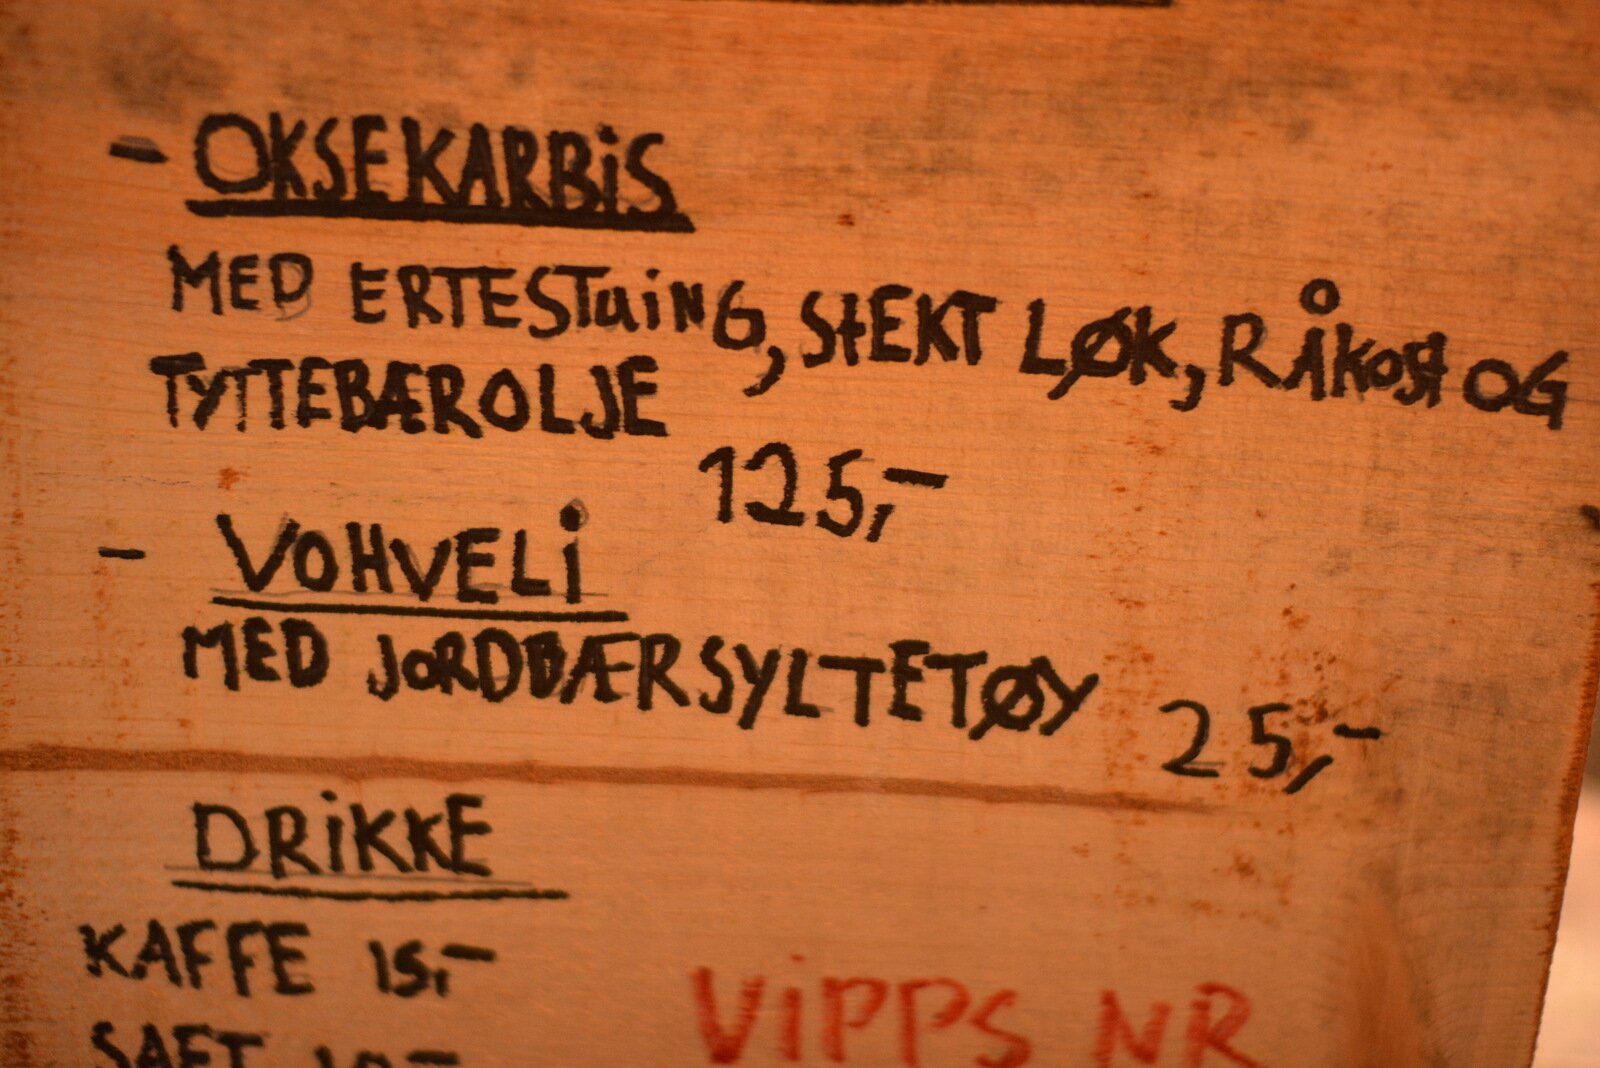 - OKSEKARBiS
MED ERTESTUiNG, STEKT LØK, RÅKOST OG
TYTTEBÆROLJE
125,-
- VOHVELi
MED JORDBÆRSYLTETØY 25,-
DRiKKE
KAFFE 15,-
SAFT 10,-
ViPPS NR